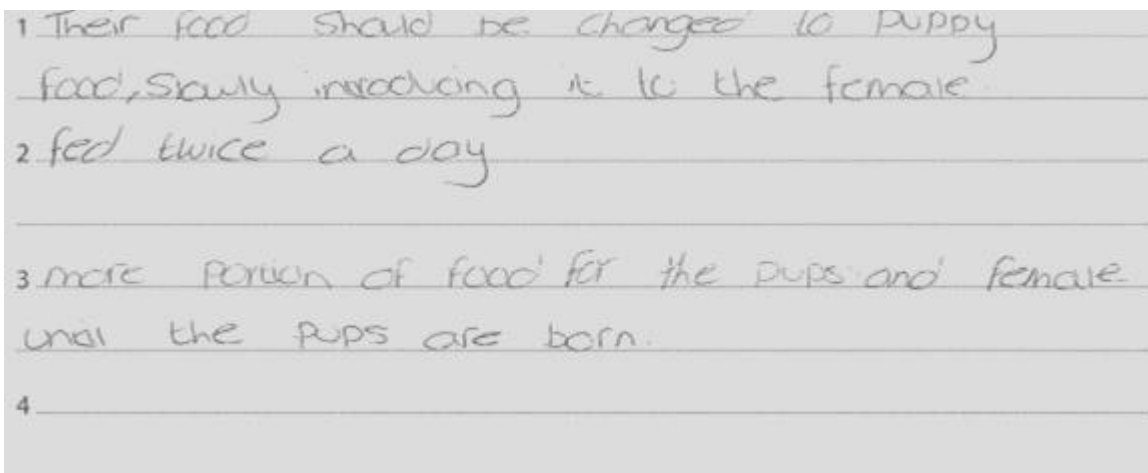 1 Their food should be changed to puppy
food, slowly introducing it to the female.
2 fed twice a day
3 more portion of food for the pups and female
until the pups are born.
4